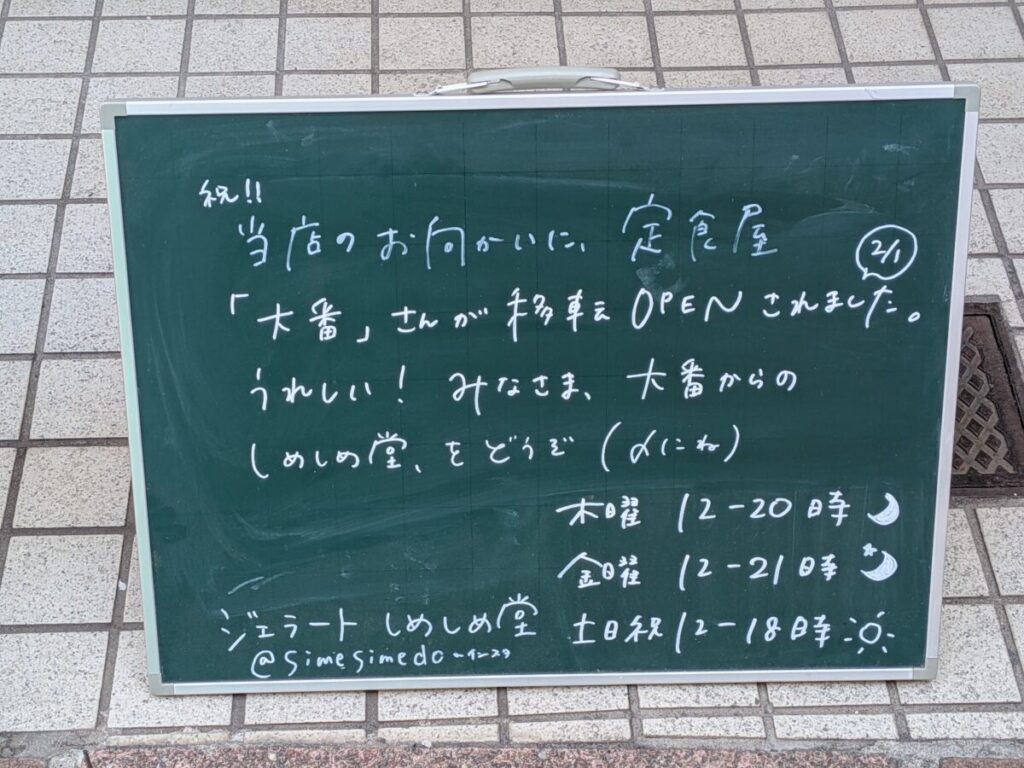 祝!!
当店のお向かいに、定食屋
2/1
「大番」さんが移転OPENされました。
うれしい! みなさま、大番からの
しめしめ堂、をどうぞ(〆にね)
木曜 12-20時
金曜 12-21時
土日祝 12-18時
ジェラート しめしめ堂
@simesimedo ～インスタ